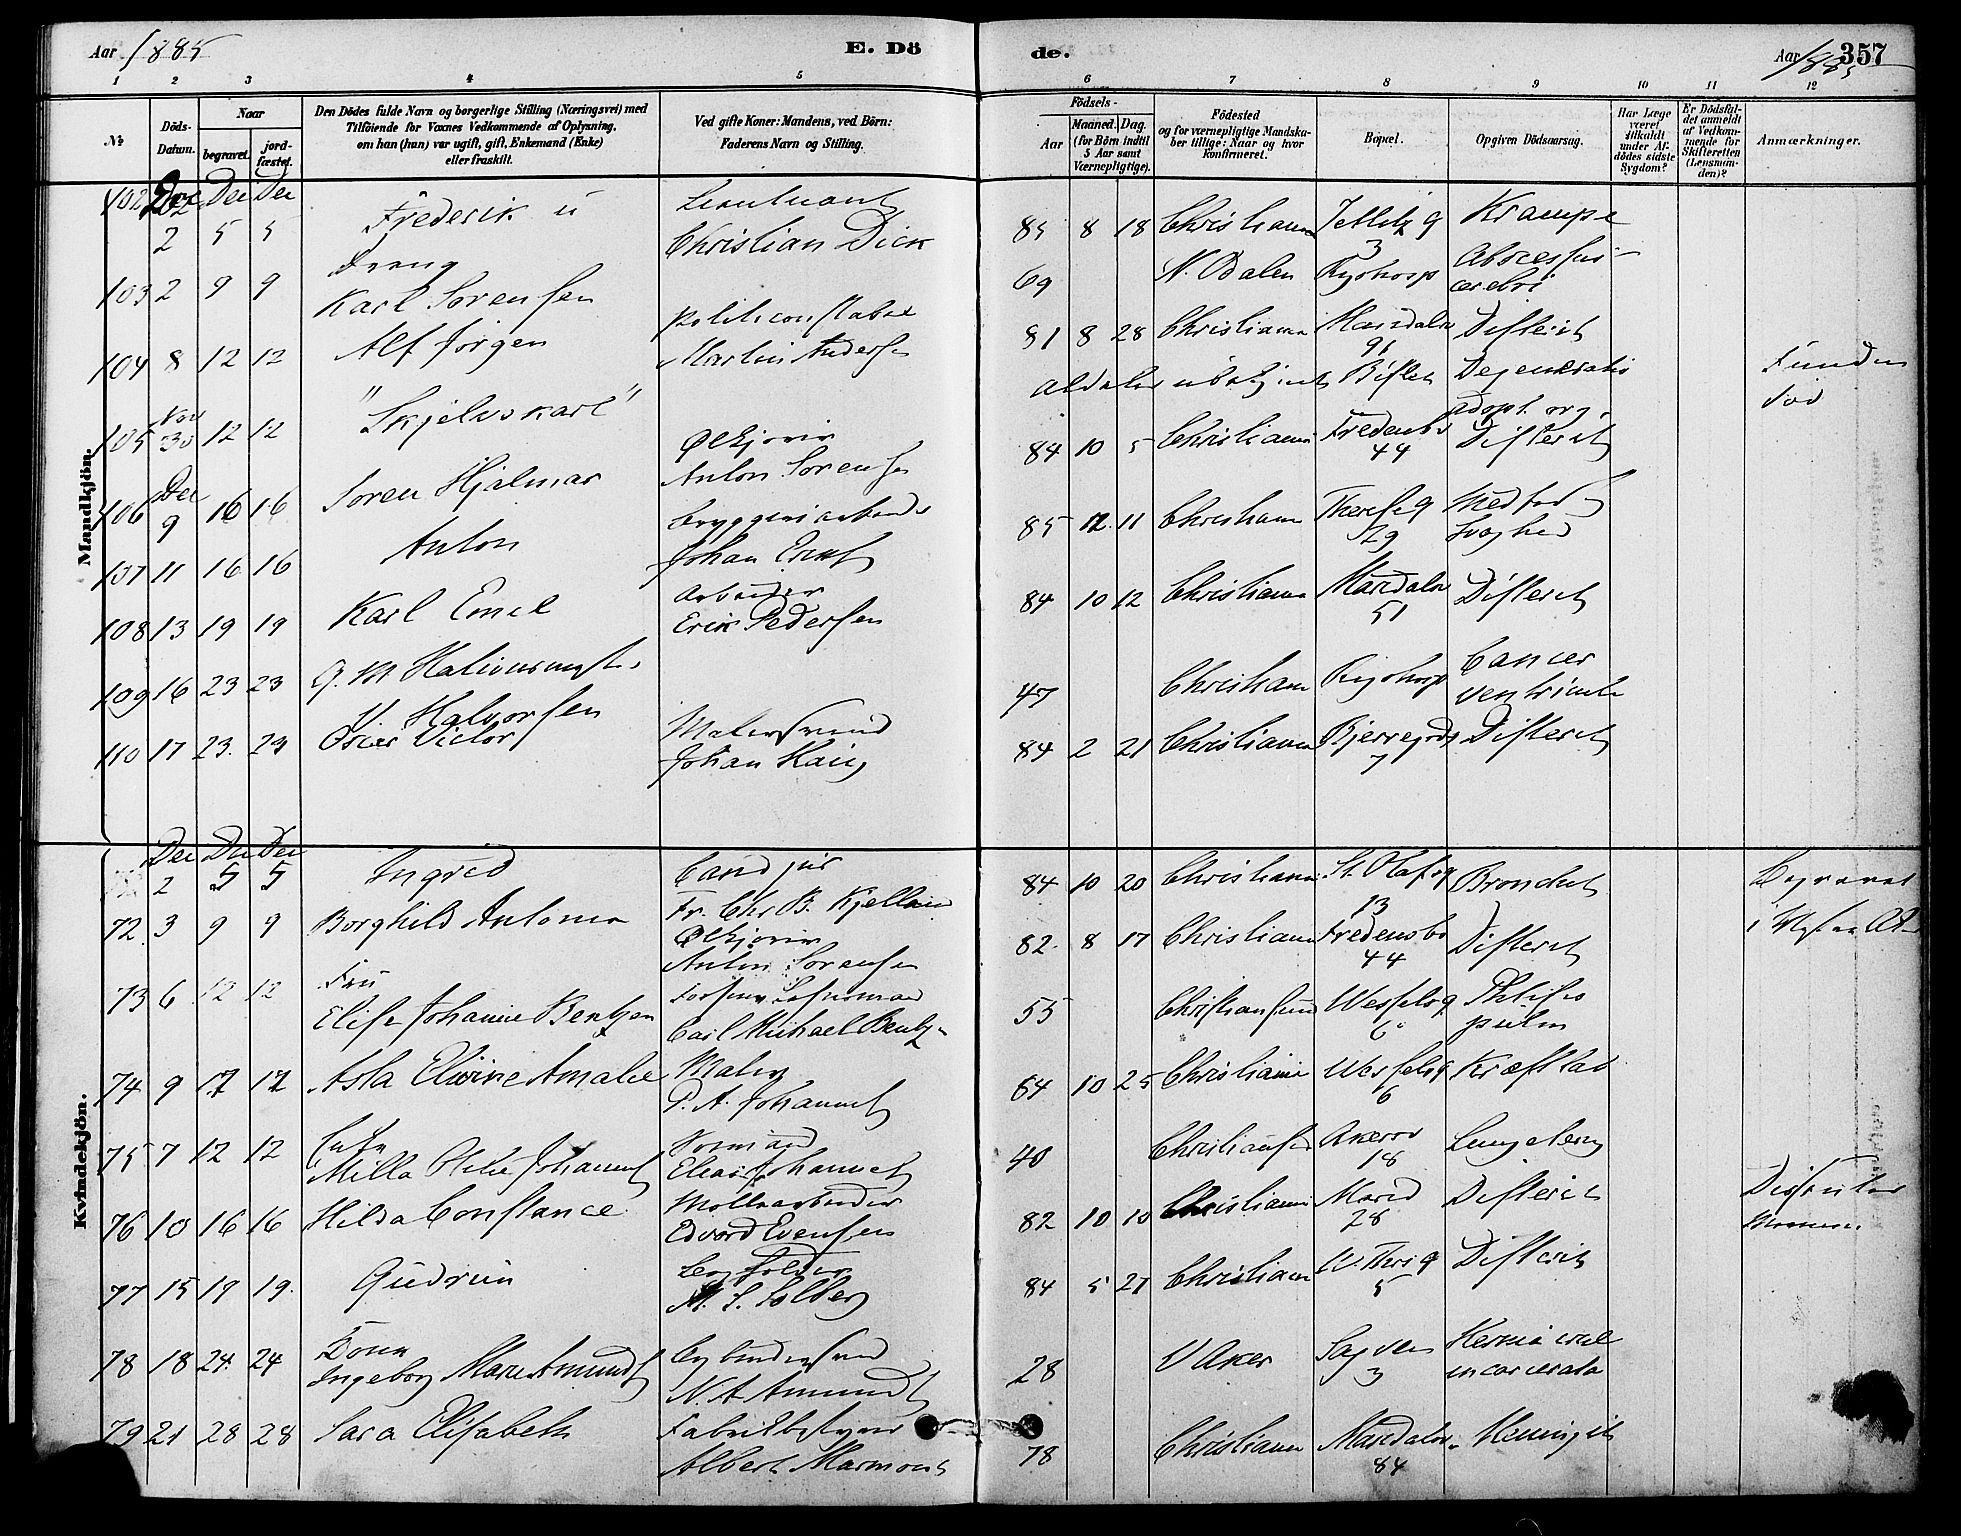 Aar 1885
E. Dö
de.
Aar 1885
357
1 2 3 4 5 6 7 8 9 10 11 12
No
Döds-Datum.
Naar
begravet.
jord-fæstet.
Den Dödes fulde Navn og borgerlige Stilling (Næringsvei) med
Tilföiende for Voxnes Vedkommende af Oplysning,
om han (hun) var ugift, gift, Enkemand (Enke)
eller fraskilt.
Ved gifte Koner: Mandens, ved Börn:
Faderens Navn og Stilling.
Födsels-
Aar
Maaned. Dag.
(for Börn indtil
5 Aar samt
Værnepligtige).
Födested
og for værnepligtige Mandska-
ber tillige: Naar og hvor
konfirmeret.
Bopæl.
Opgiven Dödsaarsag.
Har Læge
været
tilkaldt
under Af-
dödes sidste
Sygdom?
Er Dödsfal-
det anmeldt
af Vedkom-
mende for
Skifteretten
(Lensman-
den)?
Anmærkninger.
Mandkjön.
102 Dec 2 Dec 5 Dec 5 Frederik Christian Dick 85 8 18 Christiania 3 Krampe
103 2 9 9 Karl Sorensen 69 N. Odalen Abscessus cerebri
104 8 12 12 Alf Jörgen Politiconstabel Martin Anders 81 8 28 Christiania Marsdalsv 91 Difterit
105 Nov 30 12 12 "Skjelvskarl" Degeneratio adopt. org. Funden död
106 Dec 9 16 16 Soren Hjalmar Ölkjörer Anton Sorens 84 10 5 Christiania Fredensbv 44 Difterit
107 11 16 16 Anton Bryggeriarbeider Johan Ernst 85 12 11 Christiania Theresesg 29 Medfödt Svaghed
108 13 19 19 Karl Emil Arbeider Erik Pedersen 84 10 12 Christiania Marsdalsv 51 Difterit
109 16 23 23 Halvorsen 47 Christiania Cancer ventriculi
110 17 23. 23 Oscar Victor Malersvend Johan 84 2 21 Christiania Bjerregds 7 Difterit
Kvindekjön.
Dec 2 Dec 5 Dec 5 Ingrid Cand jur Fr. Chr B. Kjelland 84 10 20 Christiania St. Olafsg 13 Bronchit Begravet i
72. 3 9 9 Borghild Antonia Ölkjörer Anton Sorensen 82. 8 17 Christiania Fredensbv 44 Difterit
73 6 12 12 Fru Elise Johanne Bentzen Carl Michael Bentzen 55 Christiansund Wesselsg 6 Phtisis pulm
74 9 17 17 Asta Elvine Amalie Maler P. A. Johannes 64 10 25 Christiania Wesselsg 6 Kræftskad
75 7 12 12 Milla Johannes Formand Elias Johannes 40 Christiansund Akersv 18 Lungetering
76 10 16 16 Hilda Constance Möllearbeider Edvard Evensen 82 10 10 Christiania Marid 28 Difterit Dissenter
77 15 19 19. Gudrun M. S. Solberg 84 5 27 Christiania 5 Difterit
78 18 24. 24 Kone Ingeborg Marie Amunds Bogbindersvend N. A. Amunds 28 V Aker Sagven 3 Hernia incarcerata
79 21 28 28 Sara Elisabeth Fabrikbestyrer Albert Marmons 78 Christiania Marsdalsv. 84 Meningit